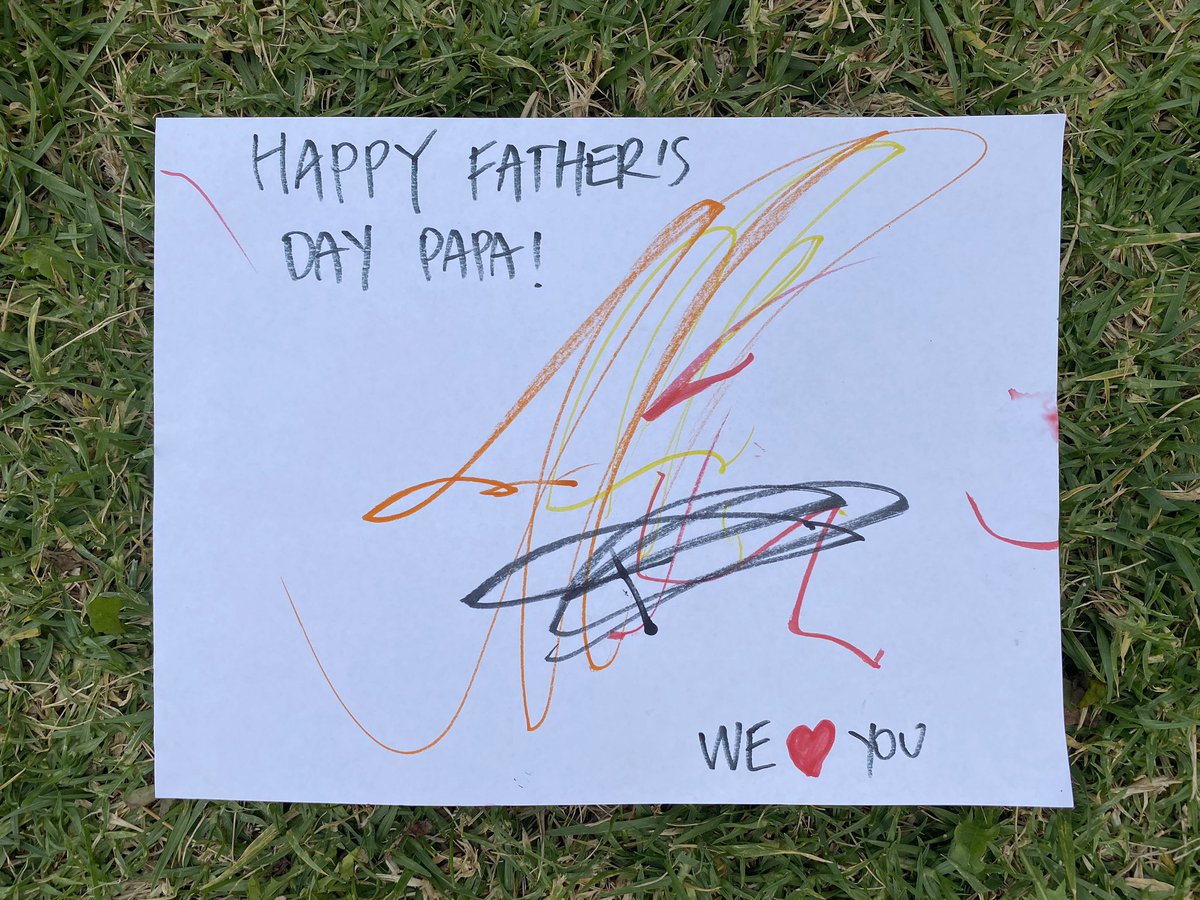 HAPPY FATHER'S
DAY PAPA!
WE ❤ YOU